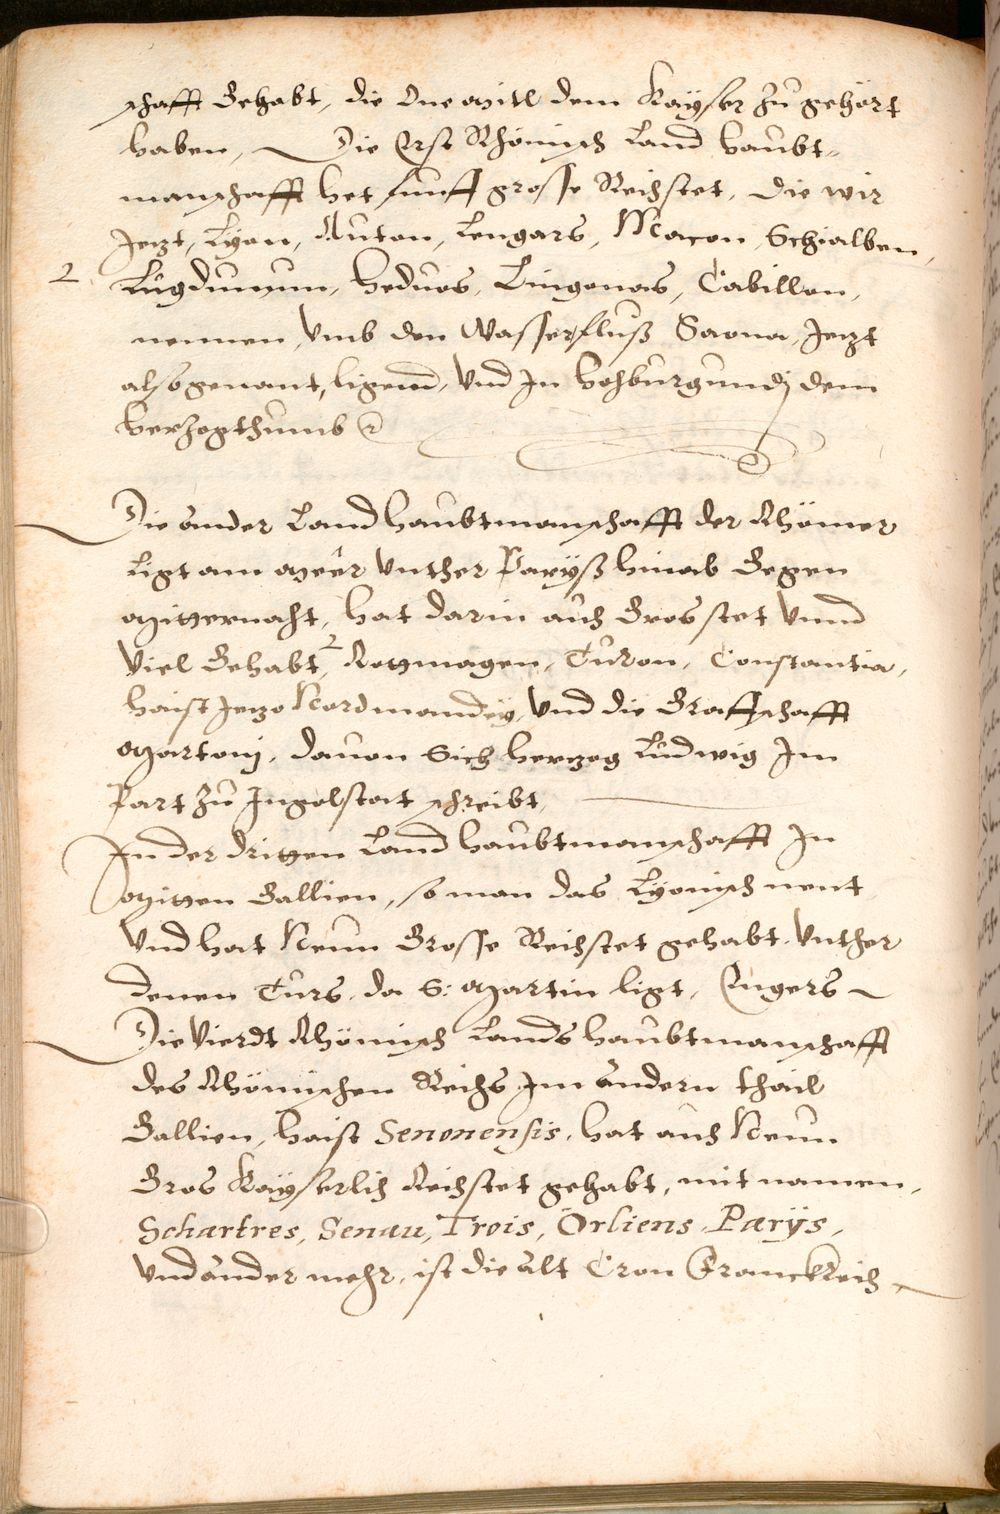 schafft Gehabt, die one mitl dem Kayser zu gehört
haben, Die Erst Rhömisch Land haubt-
manschafft het funff grosse Reichstet, die wir
Jetzt, Lyon, Auton, Lengars, Macon, Schialben,
2 Lugdunum, Heduos, Lingonas, Cabillon,
nennen, Vmb den Wasserfluß Saona, Jetzt
also genant, ligend, Vnd In hochburgundj dem
herzogthumb
Die ander Land haubtmanschafft der Rhömer
Ligt am meer Vnther Paryß hinab Gegen
mitternacht, hat darin auch Gros stet Vnnd
Viel Gehabt, 2 Rottmagen, Turon, Constantia,
haist Jetzo Nordmandey, Vnd die Graffschafft
Martonj, dauon Sich hertzog Ludwig Im
Part zu Ingolstat schreibt,
In der dritten Land haubtmanschafft In
mitten Gallien, so man das Lyonisch nent
Vnd hat Neun Grosse Reichstet gehabt, Vnther
denen Turs, da S: Martin ligt, Engers
Die Vierdt Rhömisch Lands haubtmanschafft
des Rhömischen Reichs Im andern thail
Gallien, haist Senonensis, hat auch Neun
Gros Kayserlich Reichstet gehabt, mit namen,
Schartres, Senau, Trois, Orliens, Parÿs,
Vnd ander mehr, ist die alt Cron Franckreich